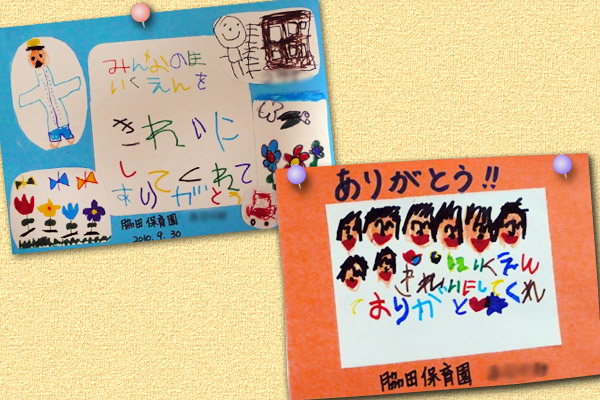 みんなのほ
いくえんを
きれいに
してくれて
ありがとう
脇田保育園
2010.9.30
ありがとう!!
ほいくえん
きれいにしてくれ
てありがと
脇田保育園